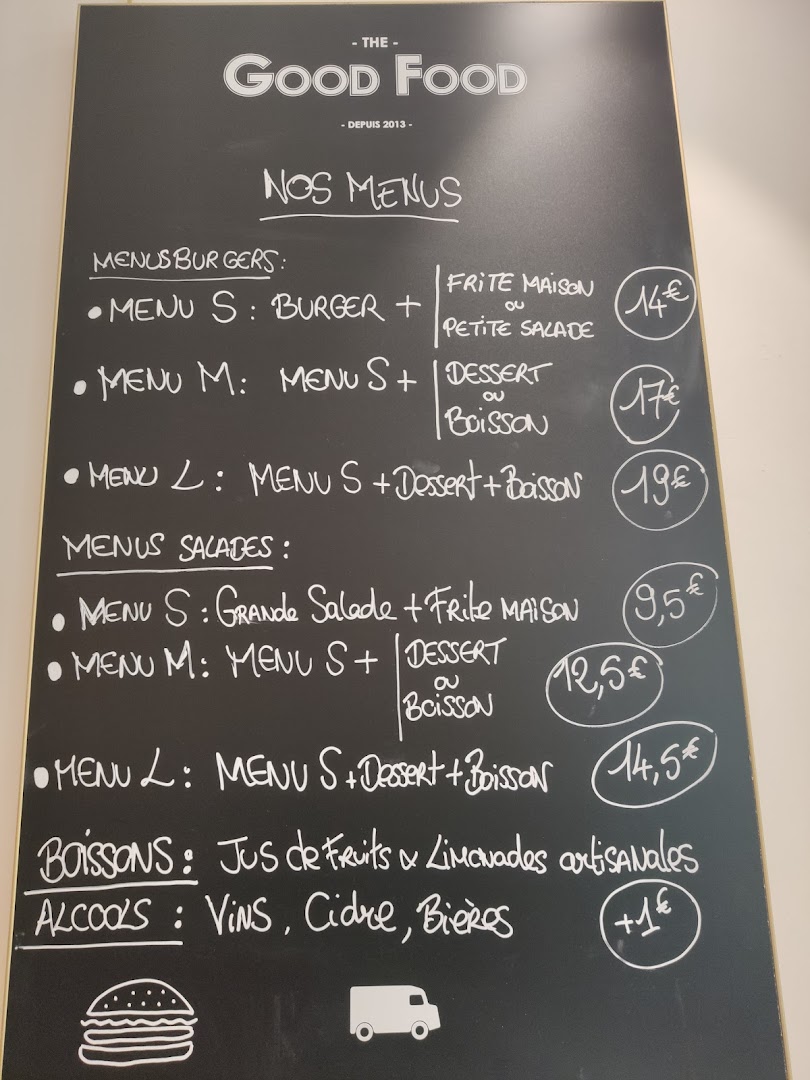 - THE -
GOOD FOOD
- DEPUIS 2013 -
NOS MENUS
MENUS BURGERS:
• MENU S : BURGER + FRITE MAISON ou PETITE SALADE 14€
• MENU M: MENU S + DESSERT ou BOISSON 17€
• MENU L : MENU S + Dessert + Boisson 19€
MENUS SALADES :
• MENU S : Grande Salade + Frite MAISON 9,5€
• MENU M: MENU S + DESSERT ou BOISSON 12,5€
• MENU L : MENU S + Dessert + Boisson 14,5€
BOISSONS : Jus de Fruits & Limonades artisanales
ALCOOLS : Vins, Cidre, Bières +1€